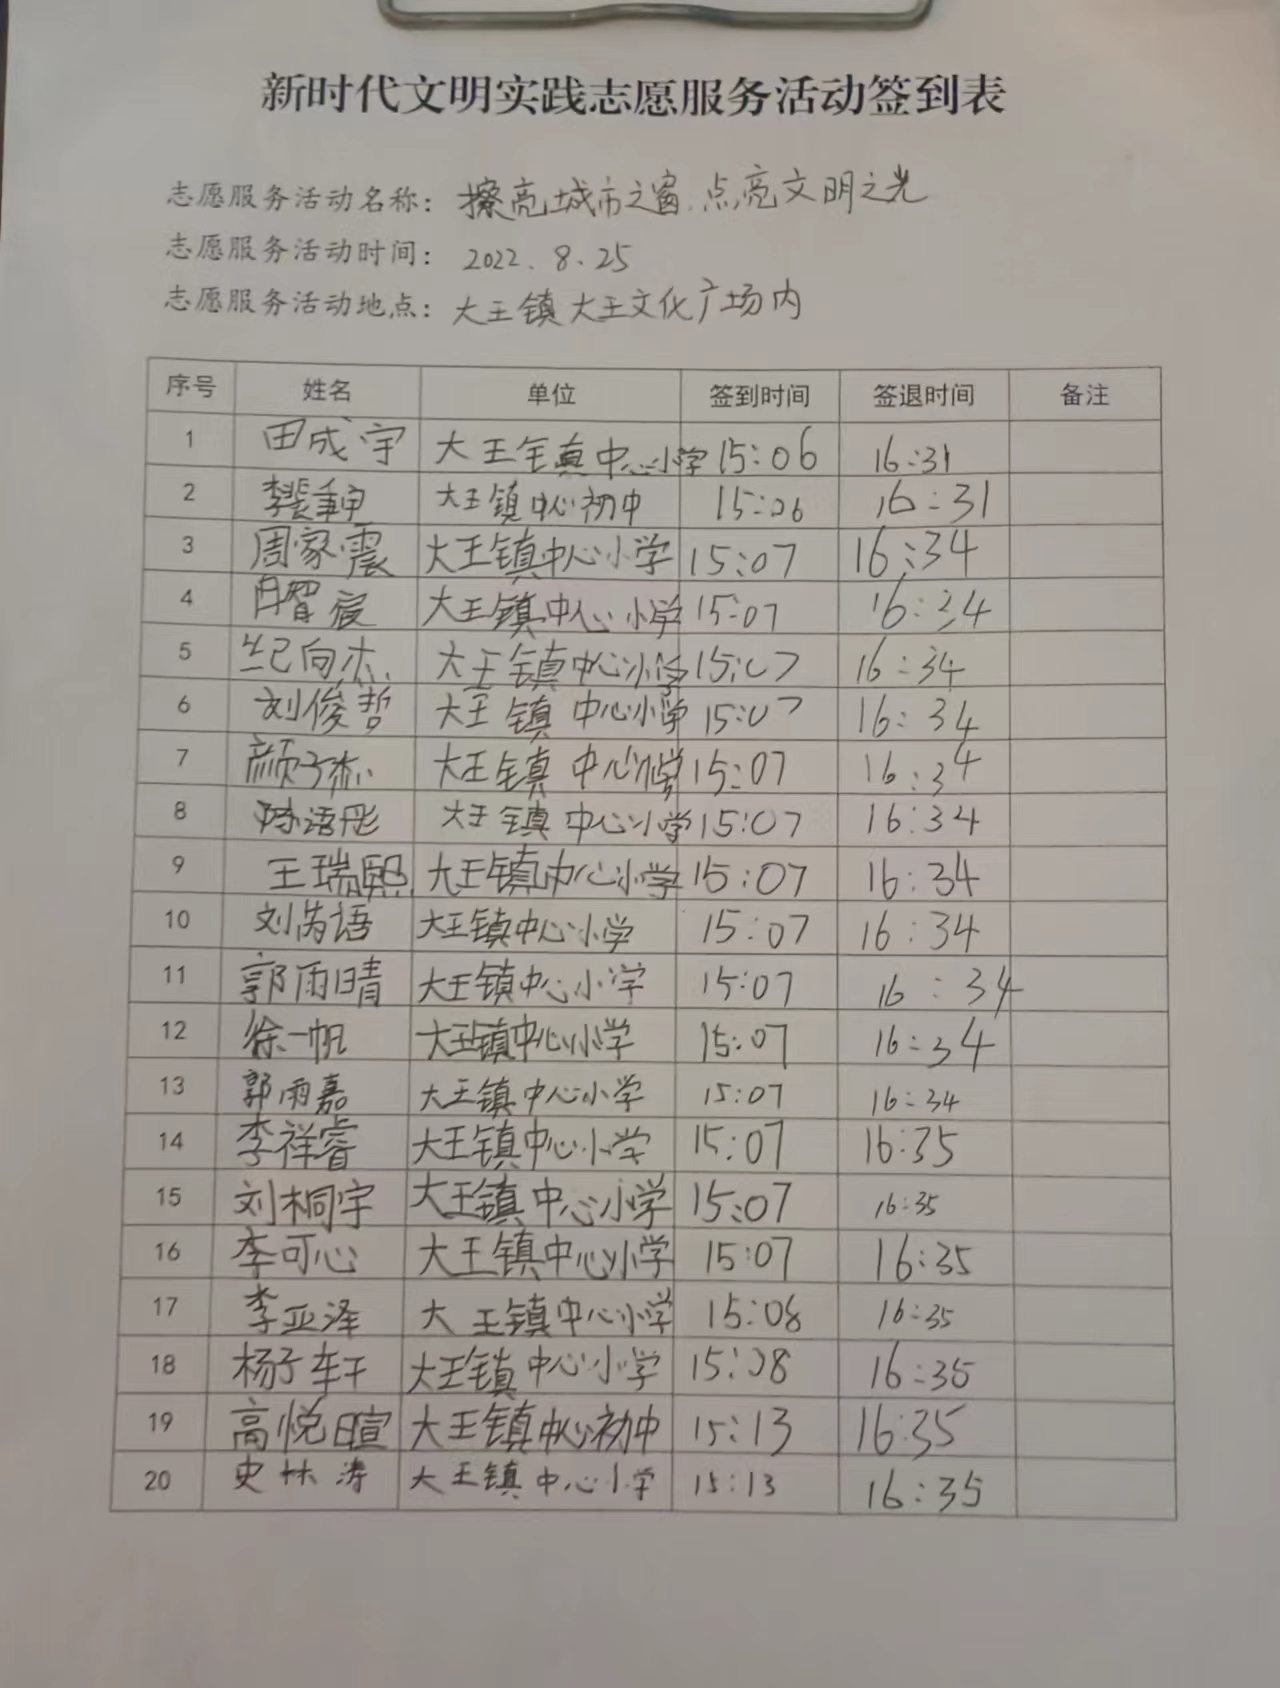 新时代文明实践志愿服务活动签到表
志愿服务活动名称：擦亮城市之窗.点亮文明之光
志愿服务活动时间：2022.8.25
志愿服务活动地点：大王镇大王文化广场内
序号 姓名 单位 签到时间 签退时间 备注
1 田成宇 大王镇中心小学 15:06 16:31
2 大王镇中心初中 15:06 16:31
3 周家震 大王镇中心小学 15:07 16:34
4 大王镇中心小学 15:07 16:34
5 纪向杰 大王镇中心小学 15:07 16:34
6 刘俊哲 大王镇中心小学 15:07 16:34
7 颜子杰 大王镇中心小学 15:07 16:34
8 陈语彤 大王镇中心小学 15:07 16:34
9 王瑞熙 大王镇中心小学 15:07 16:34
10 刘芮语 大王镇中心小学 15:07 16:34
11 郭雨晴 大王镇中心小学 15:07 16:34
12 徐一帆 大王镇中心小学 15:07 16:34
13 郭雨嘉 大王镇中心小学 15:07 16:34
14 李祥睿 大王镇中心小学 15:07 16:35
15 刘桐宇 大王镇中心小学 15:07 16:35
16 李可心 大王镇中心小学 15:07 16:35
17 李亚泽 大王镇中心小学 15:08 16:35
18 杨子轩 大王镇中心小学 15:08 16:35
19 高悦暄 大王镇中心初中 15:13 16:35
20 史林涛 大王镇中心小学 15:13 16:35